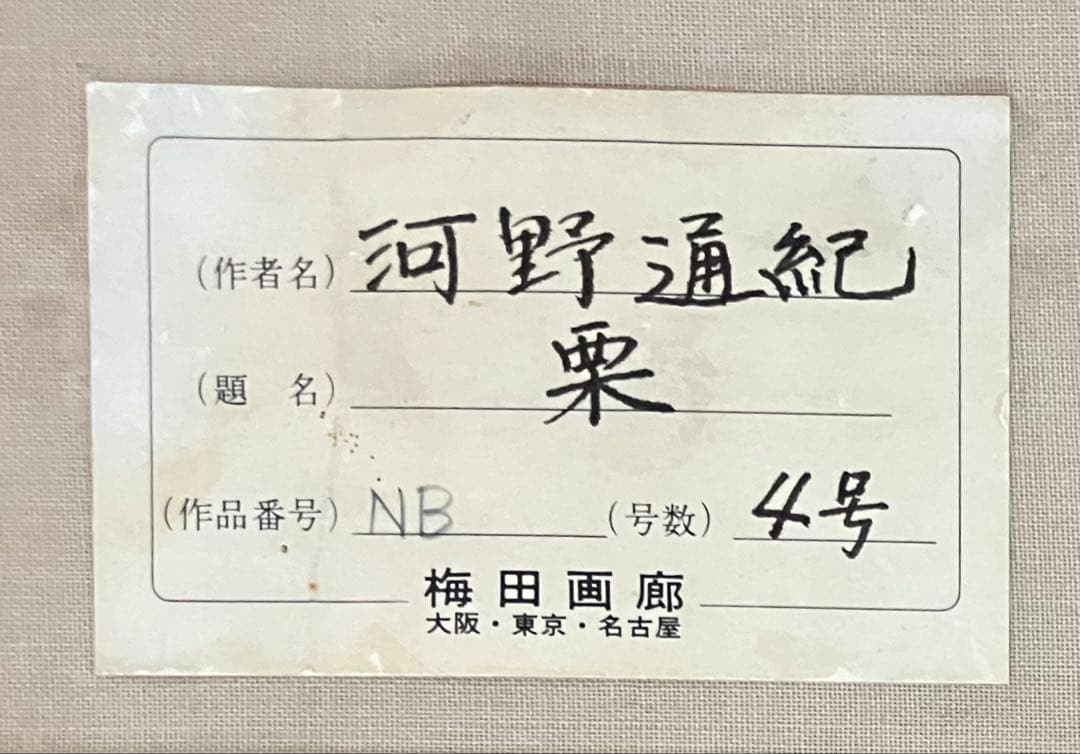 (作者名) 河野通紀
(題　名) 栗
(作品番号) NB (号数) 4号
梅田画廊
大阪・東京・名古屋